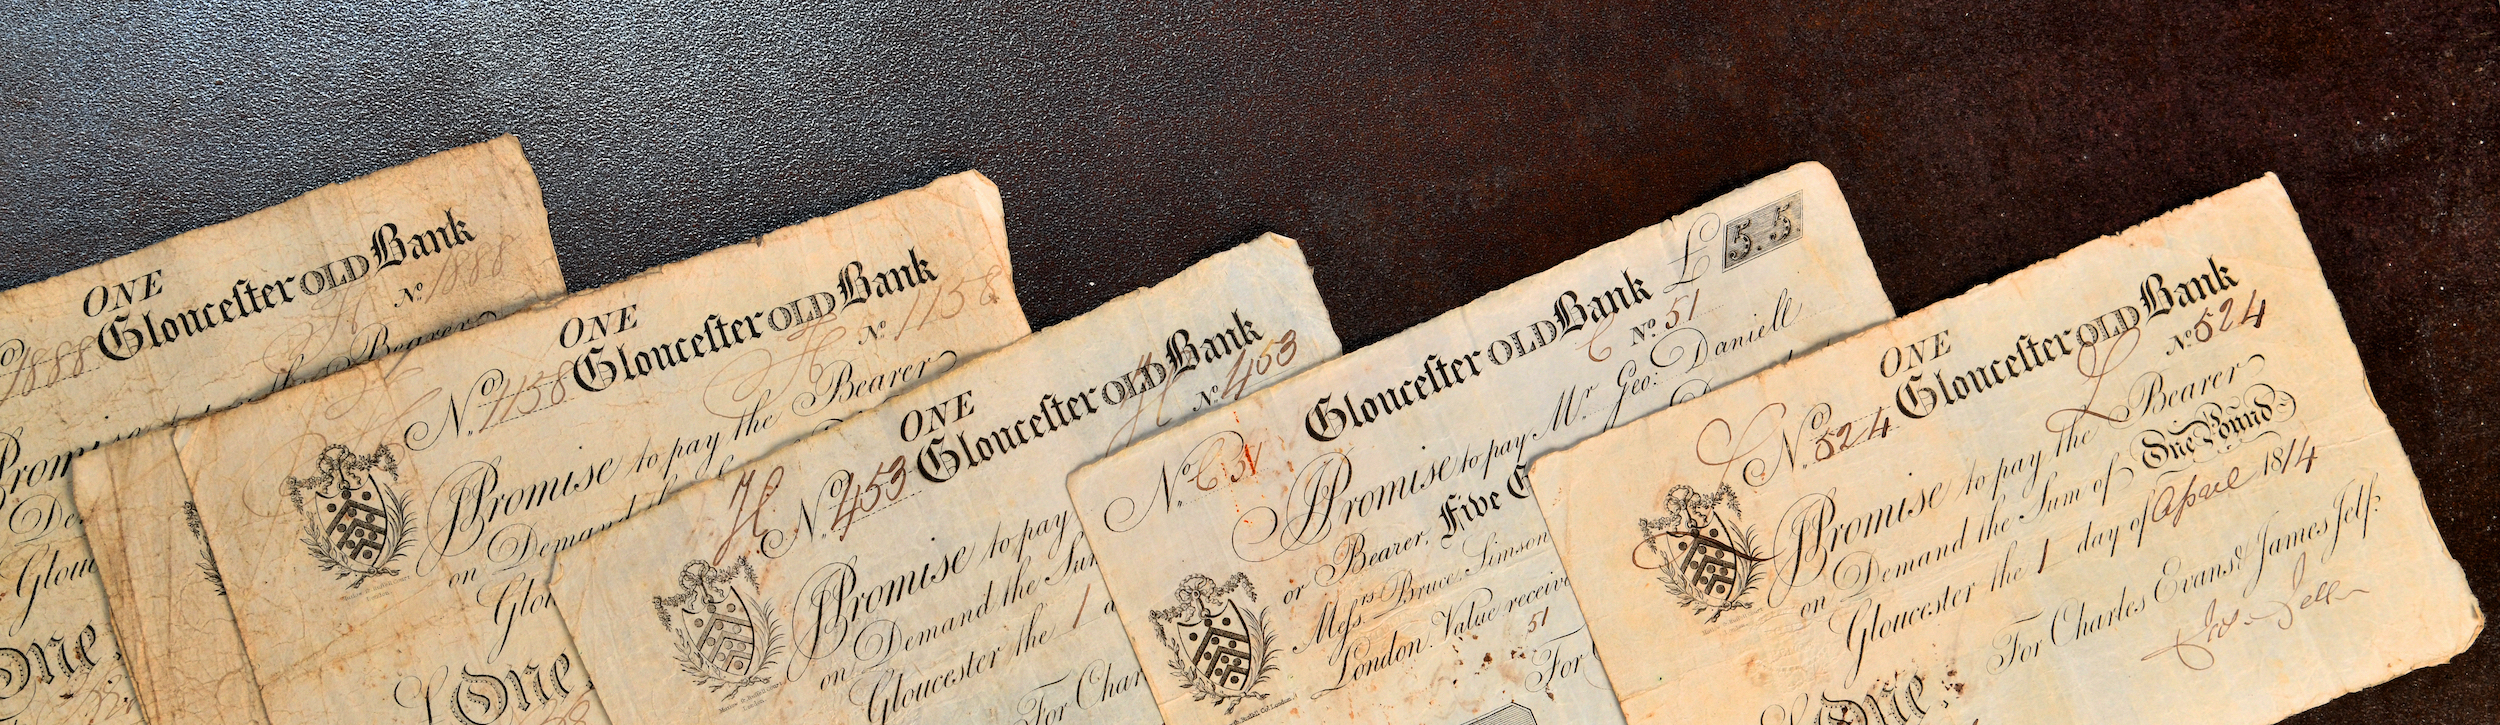 ONE
Gloucester OLD Bank
No. 1888
1888
the Bearer
Promise
on De
Glouc
One
ONE
Gloucester OLD Bank
H No. 1158
No. 1158
Promise to pay the Bearer
on Demand the
Glou
£ One
ONE
Gloucester OLD Bank
H No. 453
H No. 453
Promise to pay
on Demand the Sum
Gloucester the 1
For Char
Gloucester OLD Bank £ 5.5.
C No. 51
No. C 51
Promise to pay Mr. Geo: Daniell
or Bearer, Five G
Messrs. Bruce, Simson
London. Value receiv
51
For
ONE
Gloucester OLD Bank
L No. 524
L No. 524
Promise to pay the Bearer
on Demand the Sum of One Pound
Gloucester the 1 day of April 1814
For Charles Evans & James Jelf.
£ One